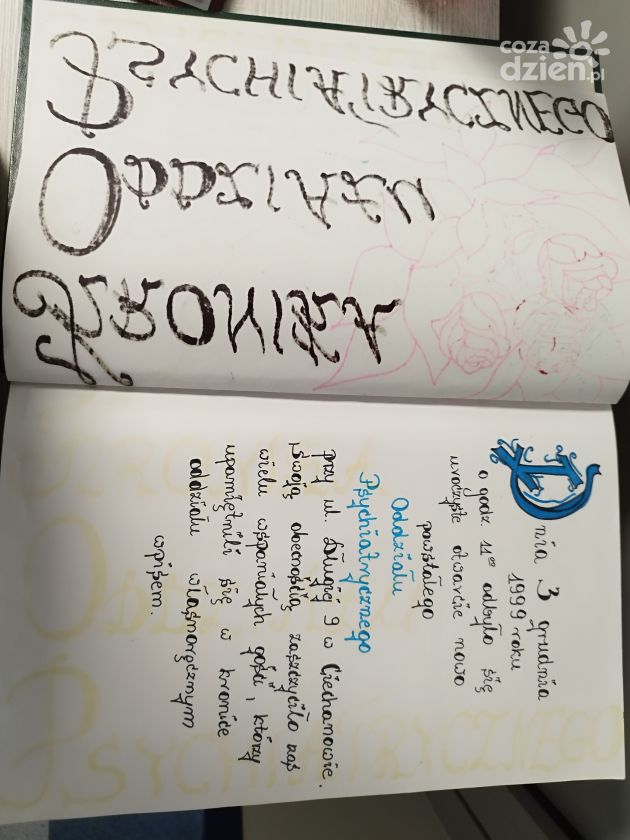 KRONIKA
ODDZIAŁU
PSYCHIATRYCZNEGO
Dnia 3 grudnia
1999 roku
o godz. 11⁰⁰ odbyło się
uroczyste otwarcie nowo
powstałego
Oddziału
Psychiatrycznego
przy ul. Długiej 9 w Ciechanowie.
Swoją obecnością zaszczyciło nas
wielu wspaniałych gości, którzy
upamiętnili się w kronice
oddziału własnoręcznym
wpisem.
coza
dzien.pl